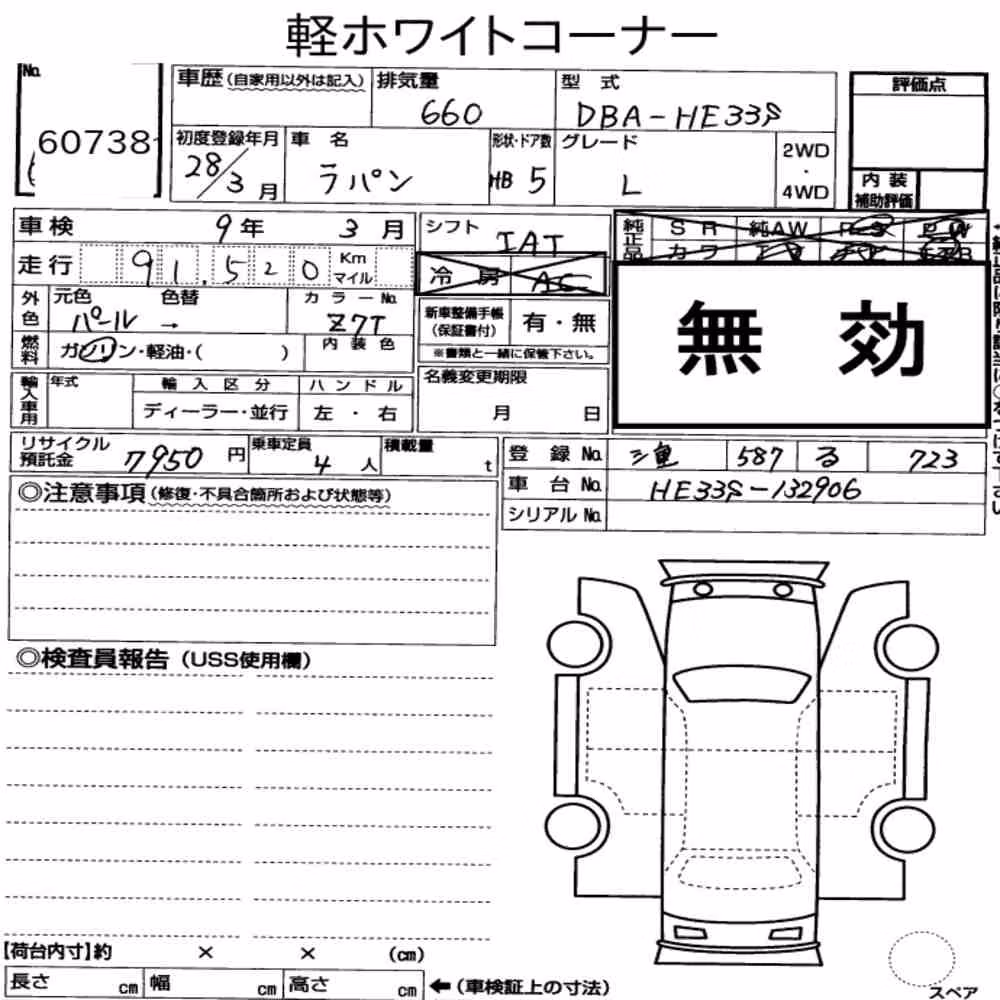 軽ホワイトコーナー
No.
60738
車歴(自家用以外は記入)
排気量
660
型 式
DBA-HE33S
評価点
初度登録年月
28/3月
車 名
ラパン
形状・ドア数
HB 5
グレード
L
2WD
・
4WD
内 装
補助評価
車検 9年 3月
シフト
IAT
純正品
SR 純AW
カワ
走行 91,520 Km
マイル
冷房 AC
外色
元色 色替
パール →
カラーNo.
Z7T
新車整備手帳
(保証書付)
有・無
※書類と一緒に保管下さい。
無 効
燃料
ガソリン・軽油・( )
内 装 色
輸入車用
年式
輸 入 区 分
ディーラー・並行
ハ ン ド ル
左 ・ 右
名義変更期限
月 日
リサイクル
預託金
7950円
乗車定員
4人
積載量
t
登 録 No. 三重 587 る 723
車 台 No. HE33S-132906
シリアル No.
◎注意事項(修復・不具合箇所および状態等)
◎検査員報告(USS使用欄)
【荷台内寸】約 × × (cm)
長さ cm 幅 cm 高さ cm ←(車検証上の寸法)
スペア